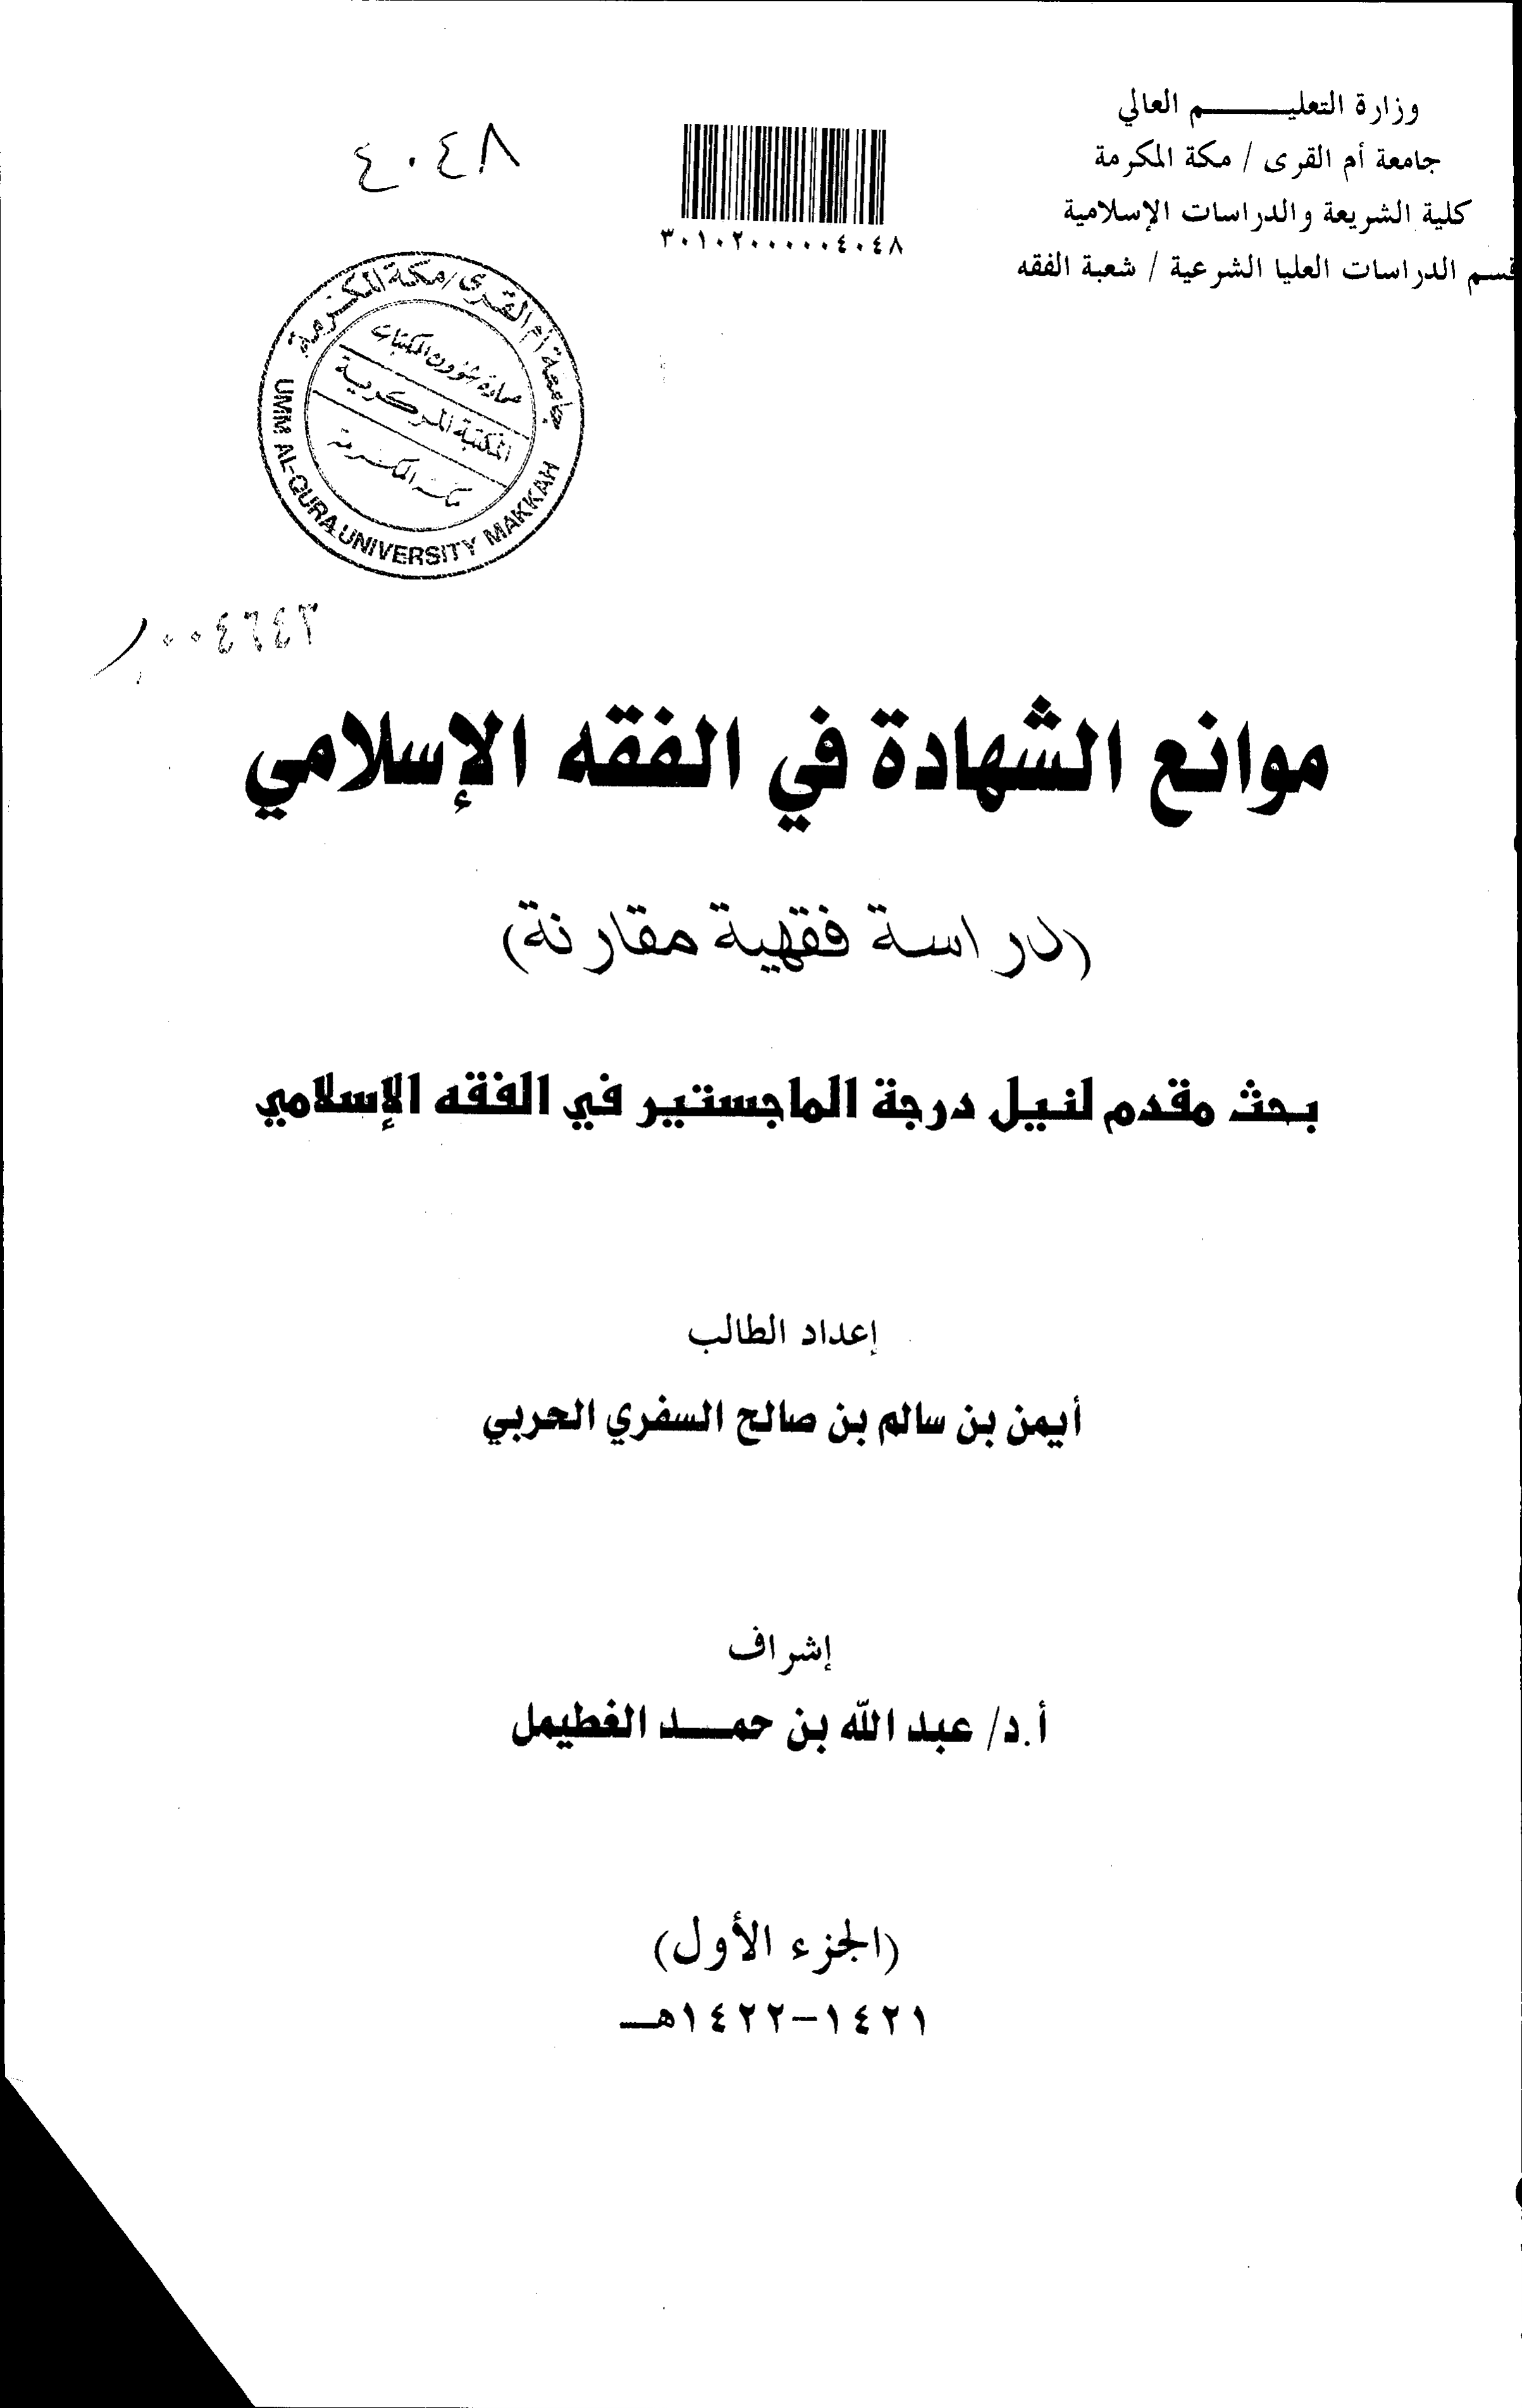 وزارة التعليـــــــم العالي
جامعة أم القرى / مكة المكرمة
كلية الشريعة والدراسات الإسلامية
قسم الدراسات العليا الشرعية / شعبة الفقه
٣٠١٠٢٠٠٠٠٠٤٠٤٨
٤٠٤٨
جامعة أم القرى / مكة المكرمة
عمادة شؤون المكتبات
المكتبة المركزية
مكة المكرمة
UMM AL-QURA UNIVERSITY MAKKAH
٠٠٤٦٤٣
موانع الشهادة في الفقه الإسلامي
(دراسة فقهية مقارنة)
بحث مقدم لنيل درجة الماجستير في الفقه الإسلامي
إعداد الطالب
أيمن بن سالم بن صالح السفري الحربي
إشراف
أ.د/ عبد الله بن حمـــد الغطيمل
(الجزء الأول)
١٤٢١-١٤٢٢هـــ